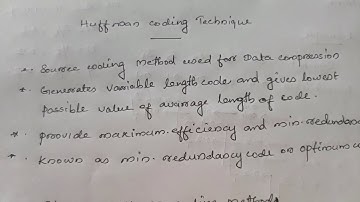 Huffman coding Technique
*. Source coding method used for Data compression
*. Generates variable length code and gives lowest
possible value of average length of code.
*. provide maximum efficiency and min. redundan
*. known as min. redundancy code or optimum